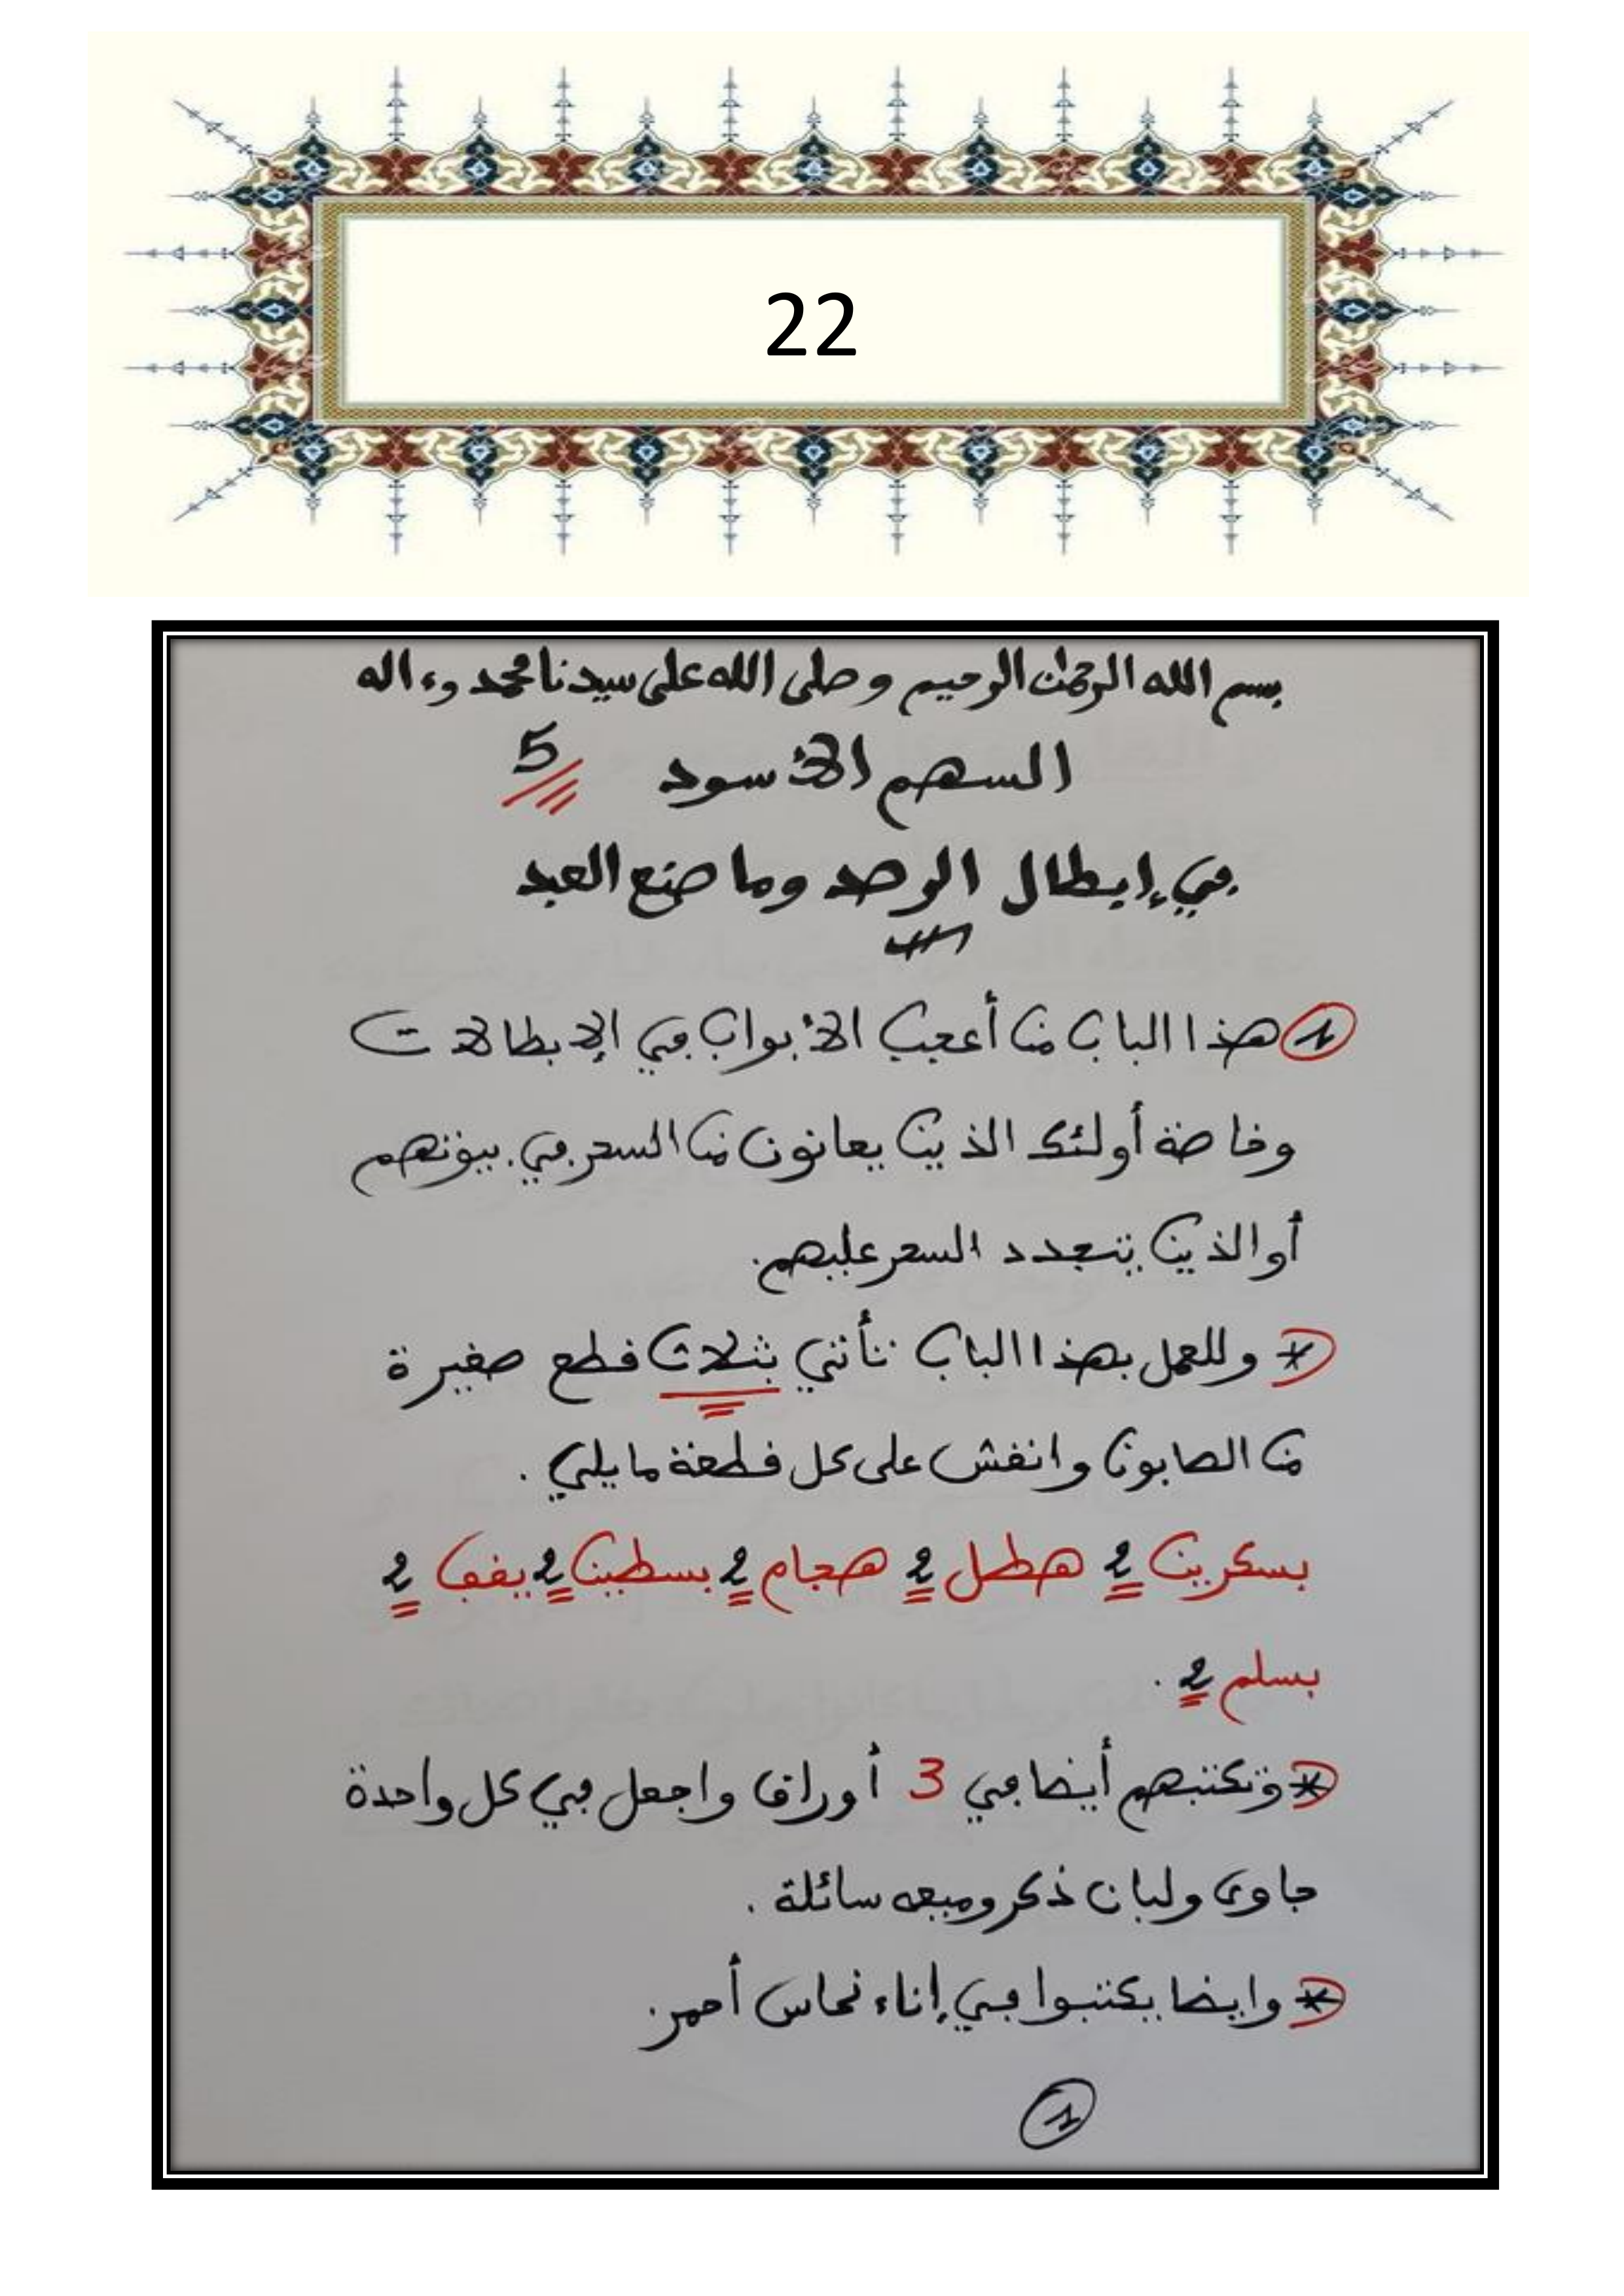 22
بسم الله الرحمٰن الرحيم وصلى الله على سيدنا محمد وءاله
السهم الأسود 5
في إبطال الرصد وما صنع العبد
1 هذا الباب من أعجب الأبواب في الإبطالات
وخاصة أولئك الذين يعانون من السحر في بيوتهم
أو الذين يتجدد السحر عليهم.
* وللعمل بهذا الباب تأتي بثلاث قطع صغيرة
من الصابون وانقش على كل قطعة ما يلي .
بسكرين 2 هطل 2 هجام 2 بسطين 2 يفف 2
بسلم 2 .
* وتكتبهم أيضا في 3 أوراق واجعل في كل واحدة
جاوى ولبان ذكر وميعه سائلة .
* وايضا يكتبوا في إناء نحاس أحمر.
1